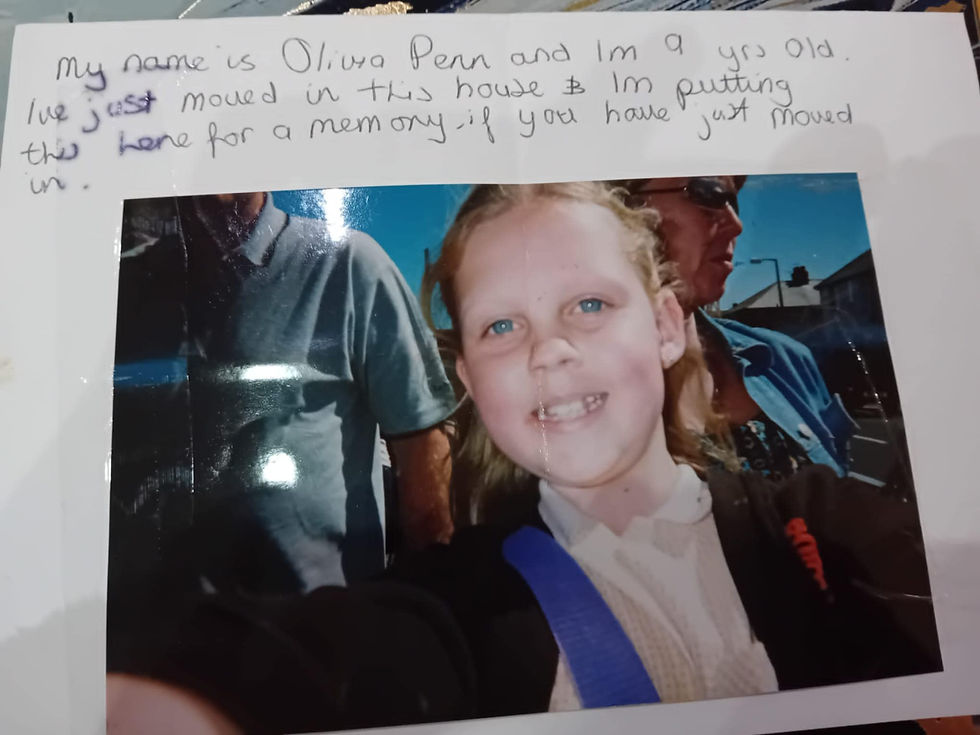 My name is Olivia Penn and Im 9 yrs old.
Ive just moved in this house & Im putting
this here for a memory. if you have just moved
in.